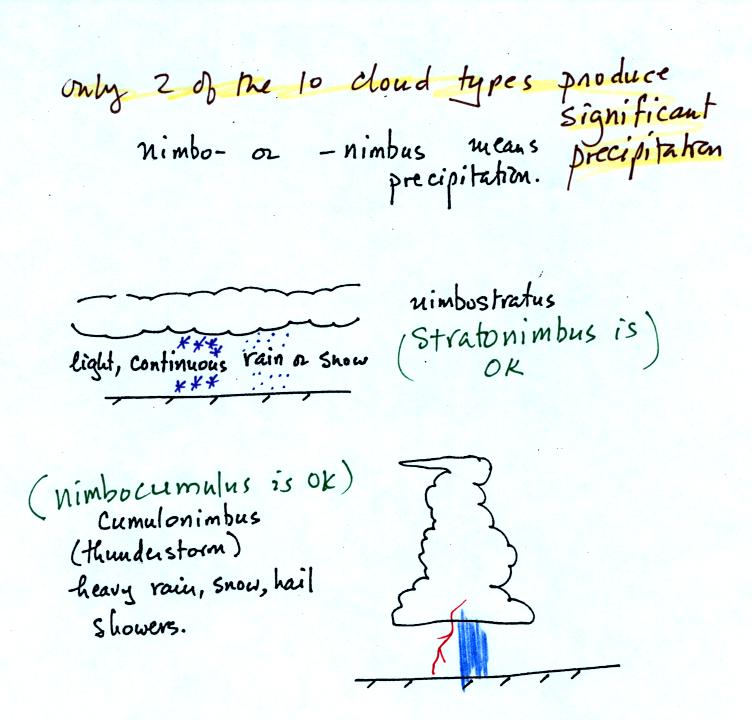 only 2 of the 10 cloud types produce
significant
precipitation
nimbo- or -nimbus means
precipitation.
nimbostratus
(Stratonimbus is
OK)
light, continuous rain or snow
(nimbocumulus is OK)
Cumulonimbus
(thunderstorm)
heavy rain, snow, hail
showers.